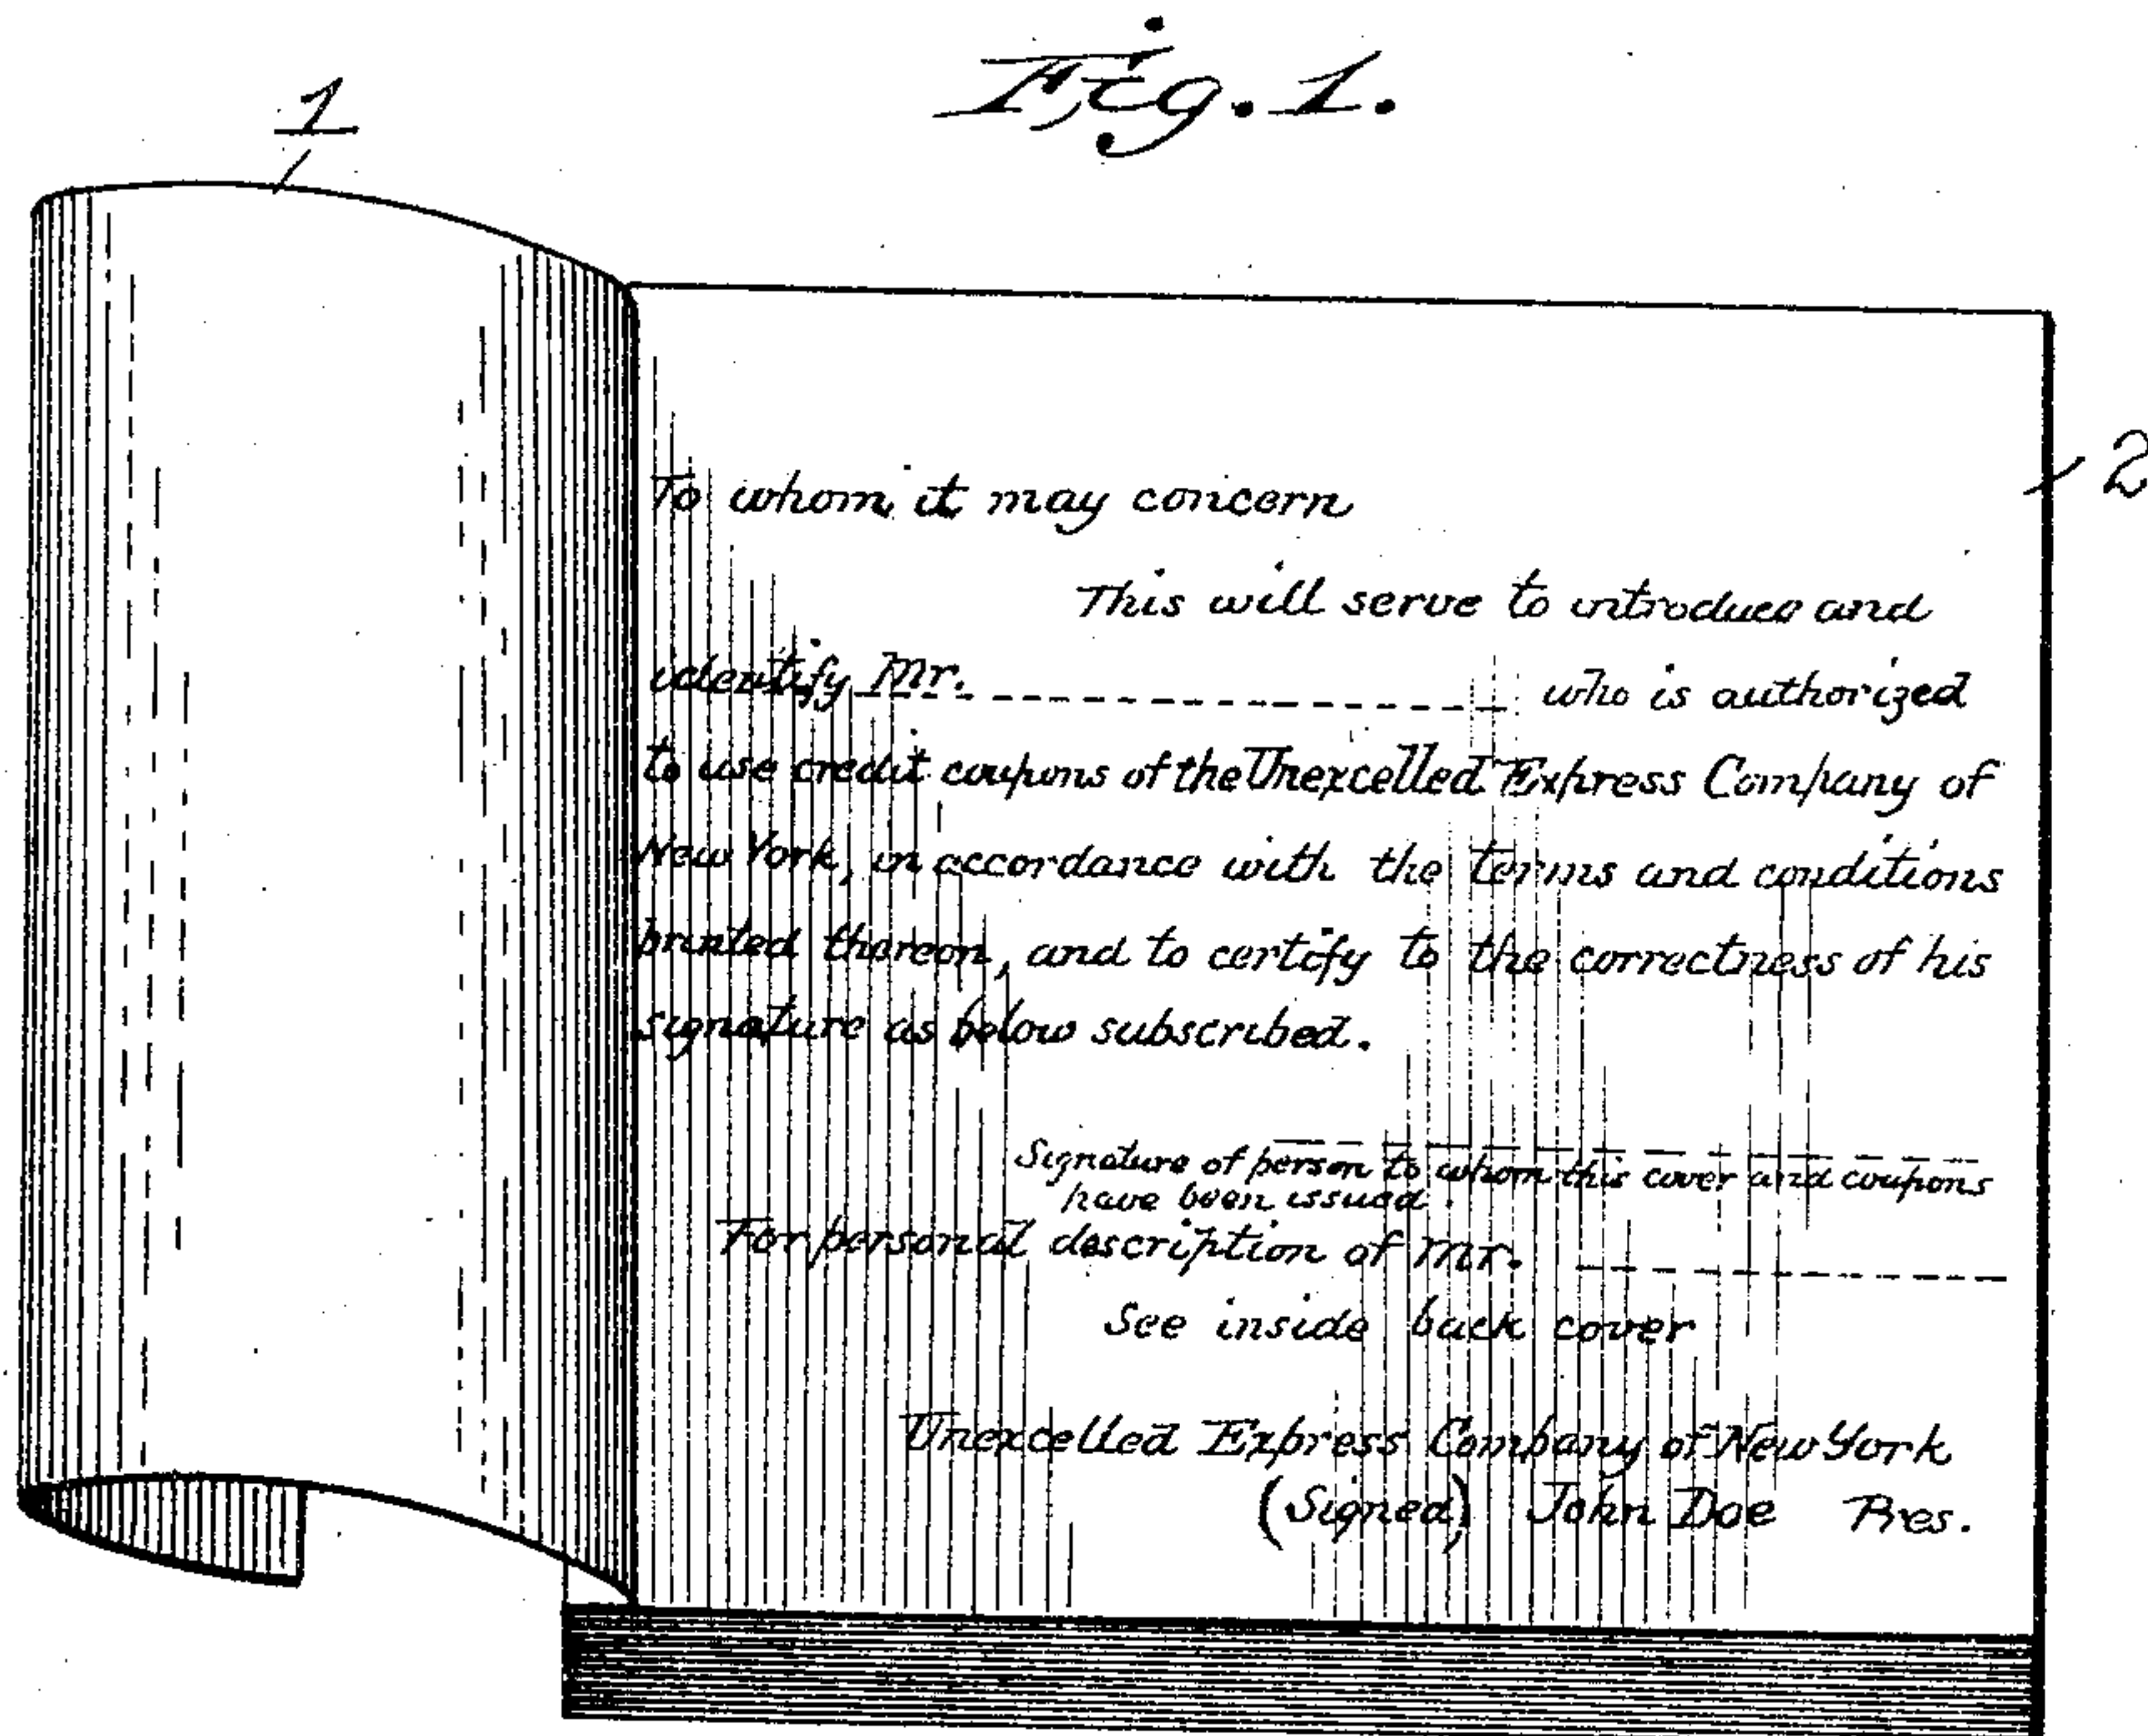 Fig. 1.
1
2
To whom it may concern
This will serve to introduce and
identify Mr. who is authorized
to use credit coupons of the Unexcelled Express Company of
New York, in accordance with the terms and conditions
printed thereon, and to certify to the correctness of his
signature as below subscribed.
Signature of person to whom this cover and coupons
have been issued.
For personal description of Mr.
See inside back cover
Unexcelled Express Company of New York
(Signed) John Doe Pres.